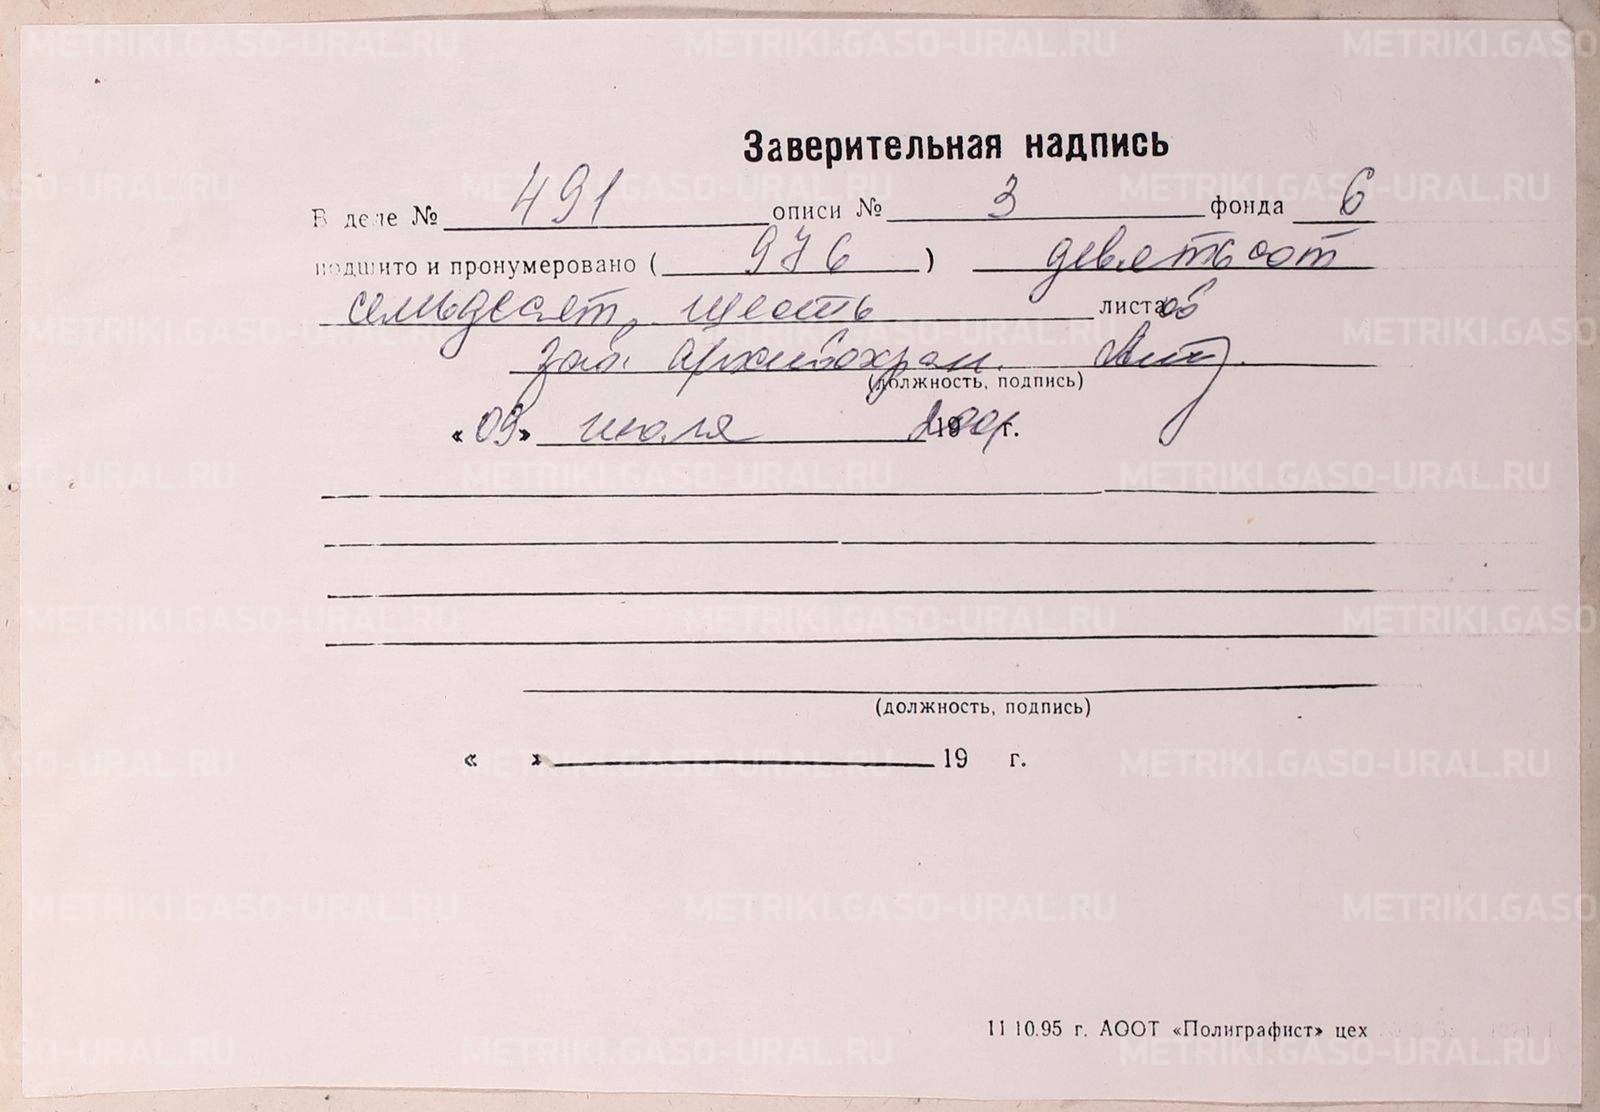 Заверительная надпись
В деле № 491 описи № 3 фонда 6
подшито и пронумеровано ( 976 ) девятьсот
семьдесят шесть листаов
зав. архивохран.
(должность, подпись)
« 09 » июля 2001 г.
(должность, подпись)
« » 19 г.
11 10.95 г. АООТ «Полиграфист» цех
METRIKI.GASO-URAL.RU